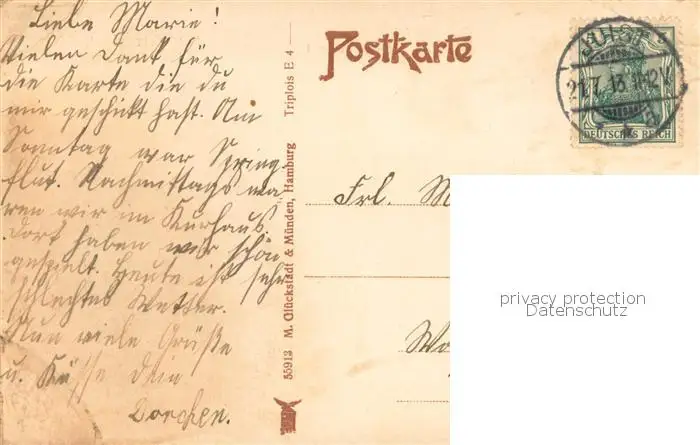 Liebe Marie!
Vielen Dank für
die Karte die du
mir geschickt hast. Am
Sonntag war Spring-
flut. Nachmittags wa-
ren wir im Kurhaus.
Dort haben wir schön
gespielt. Heute ist sehr
schlechtes Wetter.
Nun viele Grüße
u. Küsse dein
Dorchen.
55913 M. Glückstadt & Münden, Hamburg Triplois E 4
Postkarte
JUIST
21.7.13. 11-12V
a
DEUTSCHES REICH
5
Frl. M
Wo
privacy protection
Datenschutz